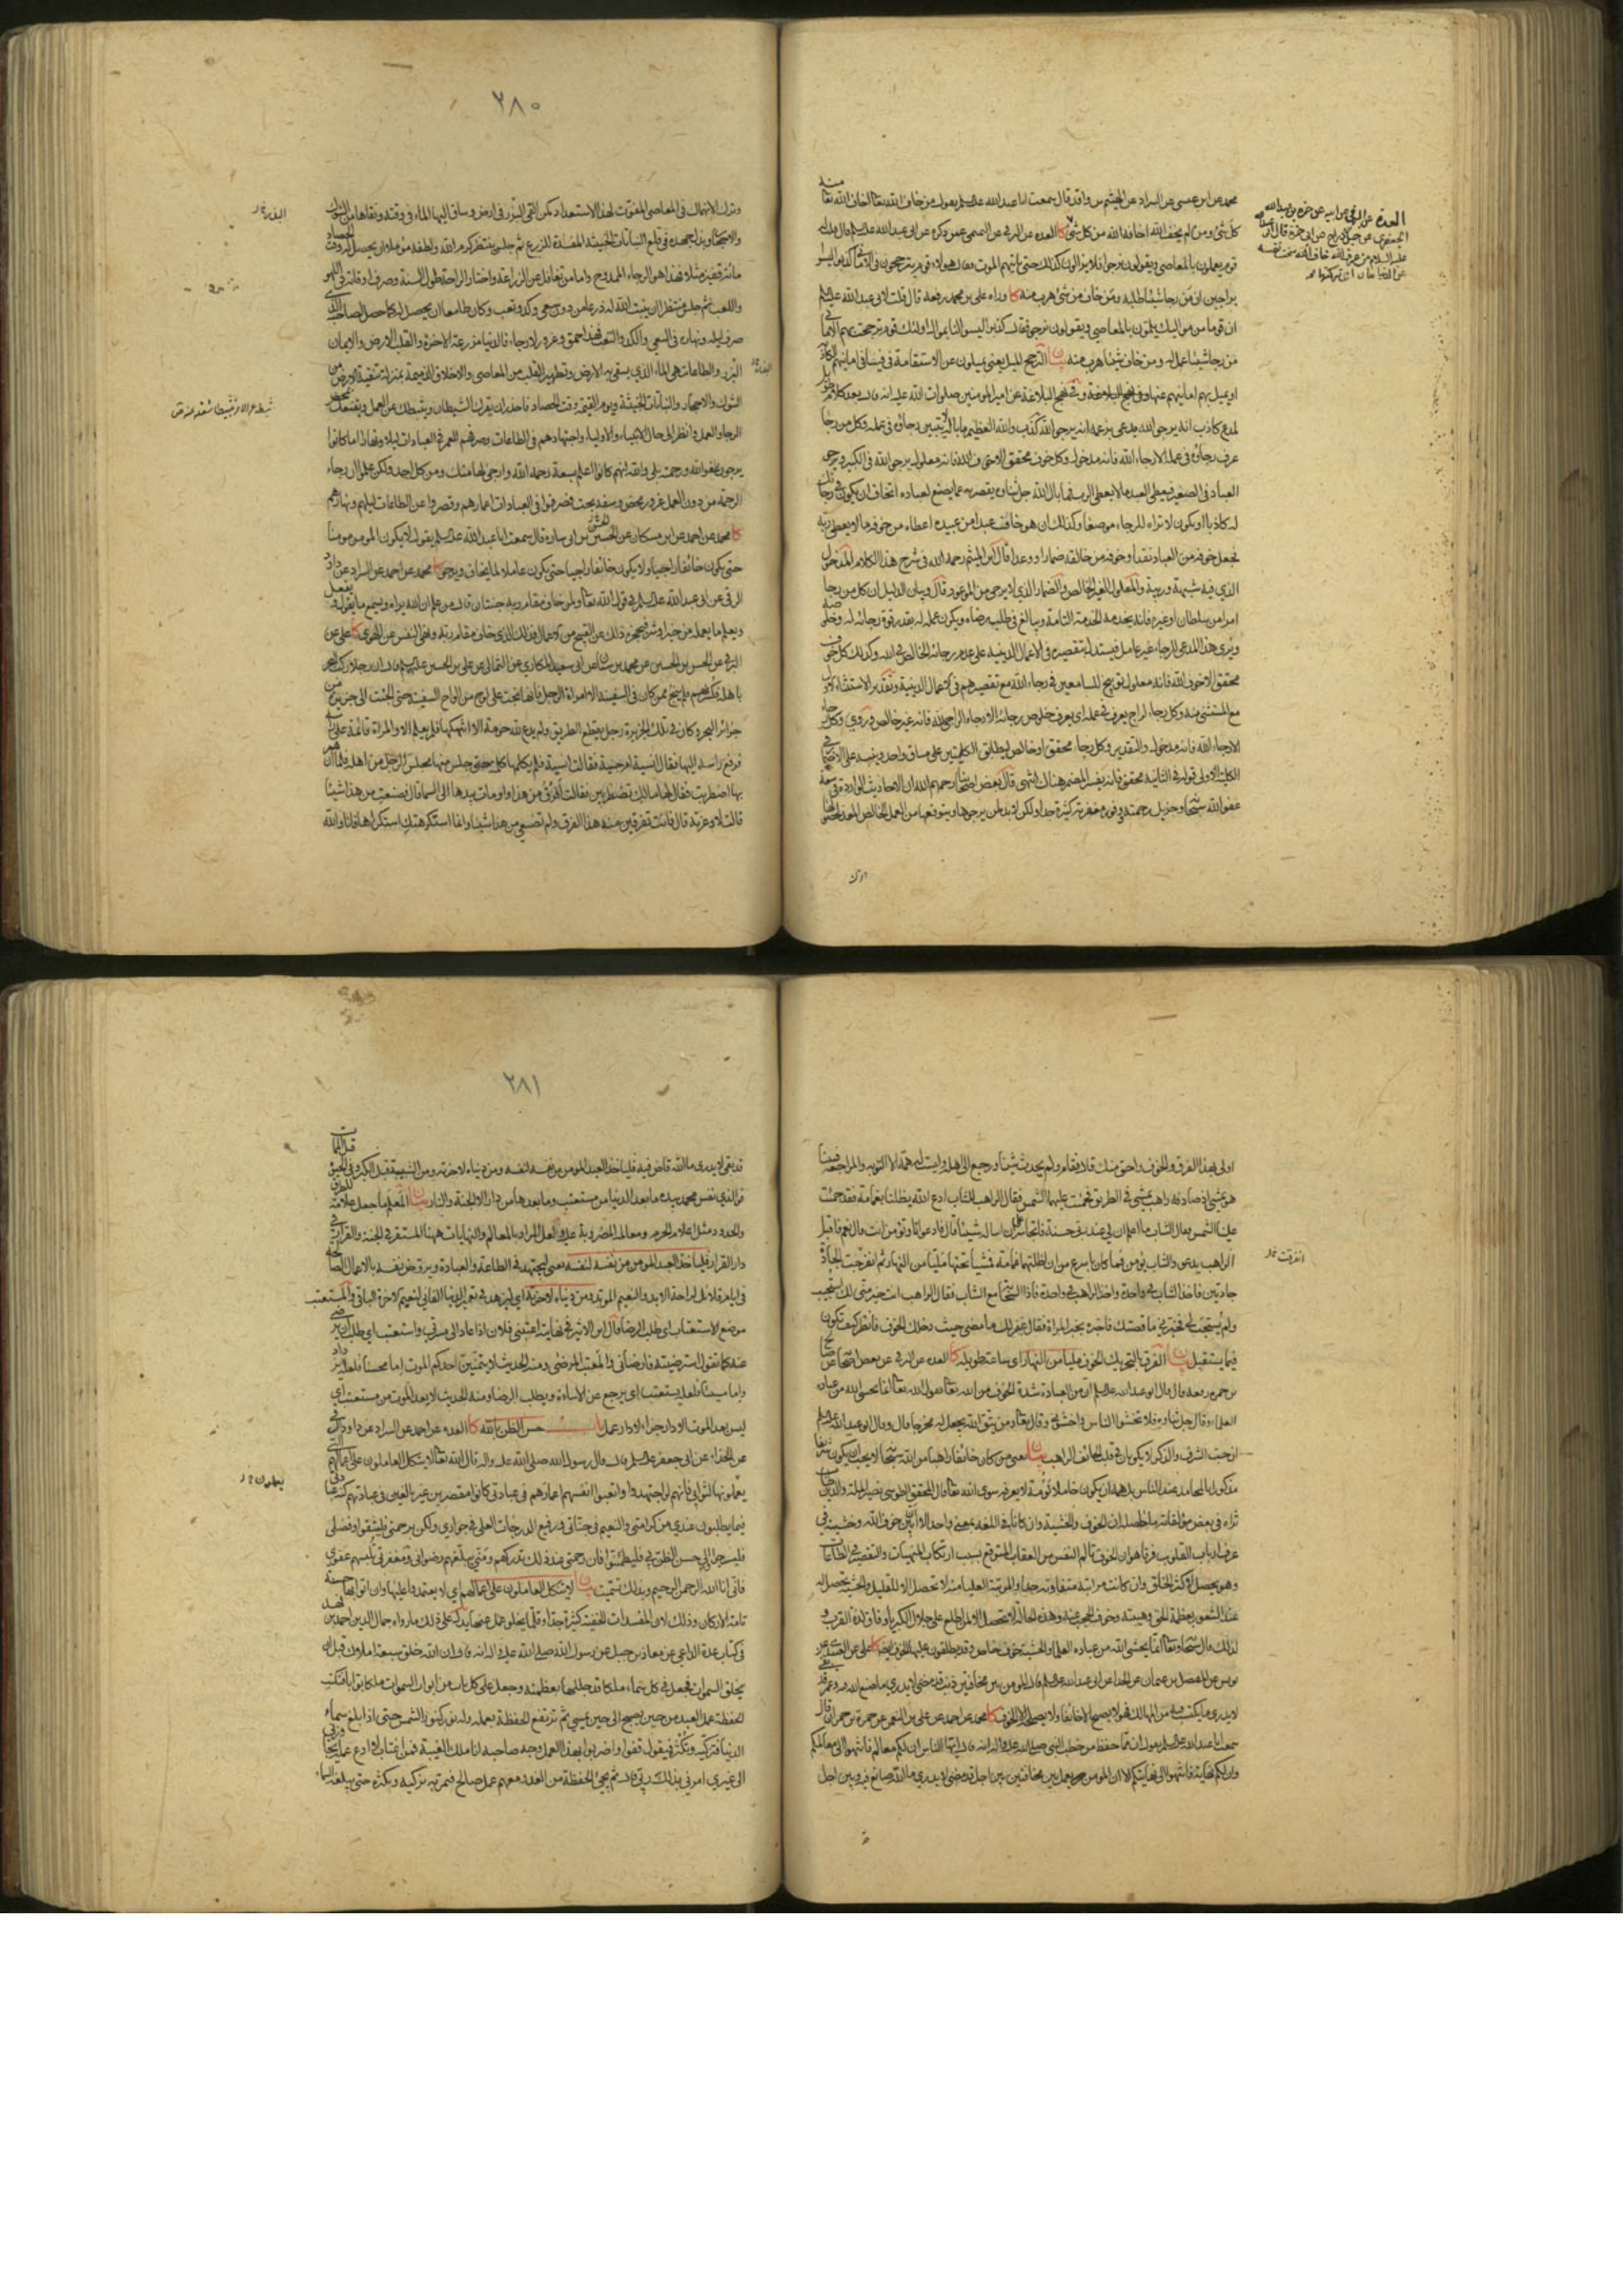 محمد عن ابن عيسى عن السراد عن الهيثم بن واقد قال سمعت ابا عبد الله عليه السلام يقول من خاف الله تعالى اخاف الله تعالى منه
كل شئ ومن لم يخف الله اخافه الله من كل شئ كا العده عن البرقى عن عمن ذكره عن ابى عبد الله عليه السلام قال قلت له
قوم يعملون بالمعاصى ويقولون نرجوا فلا يزالون كذلك حتى ياتيهم الموت فقال هؤلاء قوم يترجحون فى الامانى كذبوا ليسوا
براجين ان من رجا شيئا طلبه ومن خاف من شئ هرب منه كا ورواه على بن محمد رفعه قال قلت لابى عبد الله عليه السلام
ان قوما من مواليك يلمون بالمعاصى ويقولون نرجو فقال كذبوا ليسوا لنا بموال اولئك قوم ترجحت بهم الامانى
من رجا شيئا عمل له ومن خاف شيئا هرب منه بيان الترجح الميل يعنى يميلون عن الاستقامة
لمدع كاذب انه يرجو الله يدعى بزعمه انه يرجو الله كذب والله العظيم ما باله لا يتبين رجاؤه فى عمله وكل من رجا
عرف رجاؤه فى عمله الا رجاء الله فانه مدخول وكل خوف محقق الا خوف الله فانه معلول يرجو الله فى الكبير ويرجو
العباد فى الصغير فيعطى العبد ما لا يعطى الرب فما بال الله جل ثناؤه يقصر به عما يصنع لعباده اتخاف ان تكون فى رجائك
له كاذبا او تكون لا تراه للرجاء موضعا وكذلك ان هو خاف عبدا من عبيده اعطاه من خوفه ما لا يعطى ربه
فجعل خوفه من العباد نقدا وخوفه من خالقه ضمارا ووعدا قال ابن الميثم رحمه الله فى شرح هذا الكلام المدخول
الذى فيه شبهة وريبة والمعلول الغير الخالص والضمار الذى لا يرجى من الموعود قال وبيان الدليل ان كل من رجا
امرا من سلطان او غيره فانه يخدمه الخدمة التامة ويبالغ فى طلب رضاه ويكون عمله له بقدر قوة رجائه له وخلوصه
ويرى هذا المدعى للرجاء غير عامل فيستدل بتقصيره فى الاعمال الدينية على عدم رجائه الخالص فى الله وكذلك كل خوف
محقق الا خوف الله فانه معلول توبيخ للسامعين فى رجاء الله مع تقصيرهم فى الاعمال الدينية وتقدير الاستثناء الاول
مع المستثنى منه وكل رجاء لراج يعرف فى عمله اى يعرف خلوص رجائه الا رجاء الراجى لله فانه غير خالص وروى وكل رجاء
الا رجاء الله فانه مدخول والتقدير وكل رجاء محقق او خالص ليطابق الكليتين على مساق واحد
الكلية الاولى قوله فى الثانية محقق فانه يفسر المضمر هناك انتهى قال بعض اصحابنا رحمهم الله ان الاحاديث الواردة فى سعة
عفو الله سبحانه وجزيل رحمته ووفور مغفرته كثيرة جدا ولكن لا بد لمن يرجوها ويتوقعها من العمل الخالص المعد لحصولها
وترك
العدة عن البرقى عن ابيه عن حمزة بن عبد الله
الجعفرى عن جميل بن دراج عن ابى حمزة قال قال ابو عبد الله
عليه السلام من عرف الله خاف الله ومن خاف الله سخت نفسه
عن الدنيا
٢٨٠
وترك الانهماك فى المعاصى المفوتة لهذا الاستعداد كمن القى البذر فى ارض وساق اليها الماء فى وقته ونقاها من الشوك
والاحجار وبذل جهده فى قلع النباتات الخبيثة المفسدة للزرع ثم جلس ينتظر كرم الله ولطفه مؤملا ان يحصل له وقت الحصاد
مائة قفيز مثلا فهذا هو الرجاء الممدوح واما من تغافل عن الزراعة واختار الراحة طول السنة وصرف اوقاته فى اللهو
واللعب ثم جلس منتظرا ان ينبت الله له زرعا من دون سعى وكد وتعب وكان طامعا ان يحصل له كما حصل لصاحبه الذى
صرف ليله ونهاره فى السعى والكد والتعب فهذا حمق وغرور لا رجاء فالدنيا مزرعة الاخرة والقلب الارض والايمان
البذر والطاعات هى الماء الذى يسقى به الارض وتطهير القلب من المعاصى والاخلاق الذميمة بمنزلة تنقية الارض من
الشوك والاحجار والنباتات الخبيثة ويوم القيمة وقت الحصاد فاحذر ان يغرك الشيطان ويثبطك عن العمل ويقنعك بمحض
الرجاء والامل وانظر الى حال الانبياء والاولياء واجتهادهم فى الطاعات وصرفهم العمر فى العبادات ليلا ونهارا اما كانوا
يرجون عفو الله ورحمته بلى والله انهم كانوا اعلم بسعة رحمة الله وارجى لها منك ومن كل احد ولكن علموا ان رجاء
الرحمة من دون العمل غرور محض وسفه بحت فصرفوا فى العبادات اعمارهم وقصروا على الطاعات ليلهم ونهارهم
كا محمد عن احمد عن ابن مسكان عن الحسن بن ابى ساره قال سمعت ابا عبد الله عليه السلام يقول لا يكون المؤمن مؤمنا
حتى يكون خائفا راجيا ولا يكون خائفا راجيا حتى يكون عاملا لما يخاف ويرجو كا محمد عن احمد عن السراد عن داود
الرقى عن ابى عبد الله عليه السلام فى قول الله تعالى ولمن خاف مقام ربه جنتان قال من علم ان الله يراه ويسمع ما يقول ويفعل
ويعلم ما يعمله من خير او شر فيحجزه ذلك عن القبيح من الاعمال فذلك الذى خاف مقام ربه ونهى النفس عن الهوى كا على عن
البرقى عن الحسن بن الحسين عن محمد بن سنان عن ابى سعيد المكارى عن الثمالى عن على بن الحسين عليهما السلام قال ان رجلا ركب البحر
باهله فكسر بهم فلم ينج ممن كان فى السفينة الا امراة الرجل فانها نجت على لوح من الواح السفينة حتى الجئت الى جزيرة من
جزائر البحر وكان فى تلك الجزيرة رجل يقطع الطريق ولم يدع لله حرمة الا انتهكها فلم يعلم الا والمراة قائمة على راسه
فرفع راسه اليها فقال انسية ام جنية فقالت انسية فلم يكلمها كلمة حتى جلس منها مجلس الرجل من اهله فلما ان هم
بها اضطربت فقال لها مالك تضطربين فقالت افرق من هذا واومات بيدها الى السماء قال فصنعت من هذا شيئا
قالت لا وعزته قال فانت تفرقين منه هذا الفرق ولم تصنعى من هذا شيئا وانما استكرهتك استكراها فانا والله
البذر
اولى بهذا الفرق والخوف واحق منك قال فقام ولم يحدث شيئا ورجع الى اهله وليست له همة الا التوبه والمراجعة فبينا
هو يمشى اذ صادفه راهب يمشى فى الطريق فحميت عليهما الشمس فقال الراهب للشاب ادع الله يظلنا بغمامة فقد حميت
علينا الشمس فقال الشاب ما اعلم ان لى عند ربى حسنة فاتجاسر على ان اساله شيئا قال فادعو انا وتؤمن انت قال نعم فاقبل
الراهب يدعو والشاب يؤمن فما كان باسرع من ان اظلتهما غمامة فمشيا تحتها مليا من النهار ثم انفرجت الجادة
جادتين فاخذ الشاب فى واحدة واخذ الراهب فى واحدة فاذا السحاب مع الشاب فقال الراهب انت خير منى لك استجيب
ولم يستجب لى فخبرنى ما قصتك فاخبره بخبر المراة فقال غفر لك ما مضى حيث دخلك الخوف فانظر كيف تكون
فيما يستقبل بيان الفرق بالتحريك الخوف مليا من النهار اى ساعة طويلة كا العده عن البرقى عن بعض اصحابه عن صالح
بن حمزه رفعه قال قال ابو عبد الله عليه السلام ان من العبادة شدة الخوف من الله تعالى يقول الله تعالى انما يخشى الله من عباده
العلماء وقال جل ثناؤه فلا تخشوا الناس واخشونى وقال تعالى ومن يتق الله يجعل له مخرجا قال وقال ابو عبد الله عليه السلام
ان حب الشرف والذكر لا يكونان فى قلب الخائف الراهب بيان يعنى من كان خائفا راهبا من الله سبحانه لا يحب ان يكون شريفا
مذكورا بالمحامد عند الناس بل همه ان يكون خاملا نؤمة لا يعرفه سوى الله تعالى قال المحقق الطوسى نصير الملة والدين طاب
ثراه فى بعض مؤلفاته ما حاصله ان الخوف والخشية وان كانا فى اللغة بمعنى واحد الا ان بين خوف الله وخشيته فى
عرف ارباب القلوب فرقا هو ان الخوف تالم النفس من العقاب المتوقع بسبب ارتكاب المنهيات والتقصير فى الطاعات
وهو يحصل لاكثر الخلق وان كانت مراتبه متفاوتة جدا والمرتبة العليا منه لا تحصل الا للقليل والخشية تحصل
عند الشعور بعظمة الحق وهيبته وخوف الحجب عنه وهذه الحالة لا تحصل الا لمن اطلع على جلال الكبرياء وذاق لذة القرب و
لذلك قال سبحانه وتعالى انما يخشى الله من عباده العلماء والخشية خوف خاص وقد يطلقون عليها الخوف ايضا كا على عن العبيدى عن
يونس عن الفضيل بن عثمان عن الحذاء عن ابى عبد الله عليه السلام قال المؤمن بين مخافتين ذنب قد مضى لا يدرى ما صنع الله فيه وعمر قد بقى
لا يدرى ما يكتسب فيه من المهالك فهو لا يصبح الا خائفا ولا يصلحه الا الخوف كا محمد عن احمد عن على بن النعمان عن حمزة بن حمران قال
سمعت ابا عبد الله عليه السلام يقول ان مما حفظ من خطب النبى صلى الله عليه واله انه قال ايها الناس ان لكم معالم فانتهوا الى معالمكم
وان لكم نهاية فانتهوا الى نهايتكم الا ان المؤمن يعمل بين مخافتين بين اجل قد مضى لا يدرى ما الله صانع فيه وبين اجل
قد
٢٨١
قد بقى لا يدرى ما الله قاض فيه فلياخذ العبد المؤمن من نفسه لنفسه ومن دنياه لاخرته ومن الشبيبة قبل الكبر وفى الحيوة قبل الممات
فوالذى نفس محمد بيده ما بعد الدنيا من مستعتب وما بعدها من دار الا الجنة والنار بيان المعلم ما جعل علامة للطرق
والحدود مثل اعلام الحرم ومعالمه المضروبة عليه ولعل المراد بالمعالم والنهايات ههنا المستقر فى الجنة والقرار فى
دار القرار فلياخذ العبد المؤمن من نفسه لنفسه يعنى ليجتهد فى الطاعة والعبادة ويروض نفسه بالاعمال الصالحة
فى ايام قلائل لراحة الابد والنعيم المؤبد ومن دنياه لاخرته اى ليزهد فى نعيم الدنيا الفانى لنعيم الاخرة الباقى والمستعتب
موضع الاستعتاب اى طلب الرضا قال ابن الاثير فى نهايته اعتبنى فلان اذا عاد الى مسرتى واستعتب اى طلب ان يرضى
عنه كما تقول استرضيته فارضانى والمعتب المرضى ومنه الحديث لا يتمنين احدكم الموت اما محسنا فلعله يزداد
واما مسيئا فلعله يستعتب اى يرجع عن الاساءة ويطلب الرضا ومنه الحديث لا بعد الموت من مستعتب اى
ليس بعد الموت الا دار جزاء لا دار عمل باب حسن الظن بالله كا العده عن احمد عن السراد عن داود الرقى
عن الحذاء عن ابى جعفر عليه السلام قال قال رسول الله صلى الله عليه واله قال الله تعالى لا يتكل العاملون على اعمالهم التى
يعملونها لثوابى فانهم لو اجتهدوا واتعبوا انفسهم اعمارهم فى عبادتى كانوا مقصرين غير بالغين فى عبادتهم كنه عبادتى
فيما يطلبون عندى من كرامتى والنعيم فى جناتى ورفيع الدرجات العلى فى جوارى ولكن برحمتى فليثقوا وفضلى
فليرجوا والى حسن الظن بى فليطمئنوا فان رحمتى عند ذلك تدركهم ومنى يبلغهم رضوانى ومغفرتى تلبسهم عفوى
فانى انا الله الرحمن الرحيم وبذلك تسميت بيان لا يتكل العاملون على اعمالهم اى لا يعتمدوا عليها وان اتوا بها حسنة
تامة الاركان وذلك لان المفسدات الخفية كثيرة جدا وقلما يخلو عمل عنها يدلك على ذلك ما رواه جمال الدين احمد بن فهد
فى كتاب عدة الداعى عن معاذ بن جبل عن رسول الله صلى الله عليه واله انه قال ان الله خلق سبعة املاك قبل ان
يخلق السموات فجعل فى كل سماء ملكا قد جللها بعظمته وجعل على كل باب من ابواب السموات ملكا بوابا فتكتب
الحفظة عمل العبد من حين يصبح الى حين يمسى ثم ترتفع الحفظة بعمله وله نور كنور الشمس حتى اذا بلغ سماء
الدنيا فتزكيه وتكثره فيقول قفوا واضربوا بهذا العمل وجه صاحبه انا ملك الغيبة فمن اغتاب لا ادع عمله يجاوزنى
الى غيرى امرنى بذلك ربى قال ثم يجئ الحفظة من الغد ومعهم عمل صالح فتمر به تزكيه وتكثره حتى يبلغ السماء